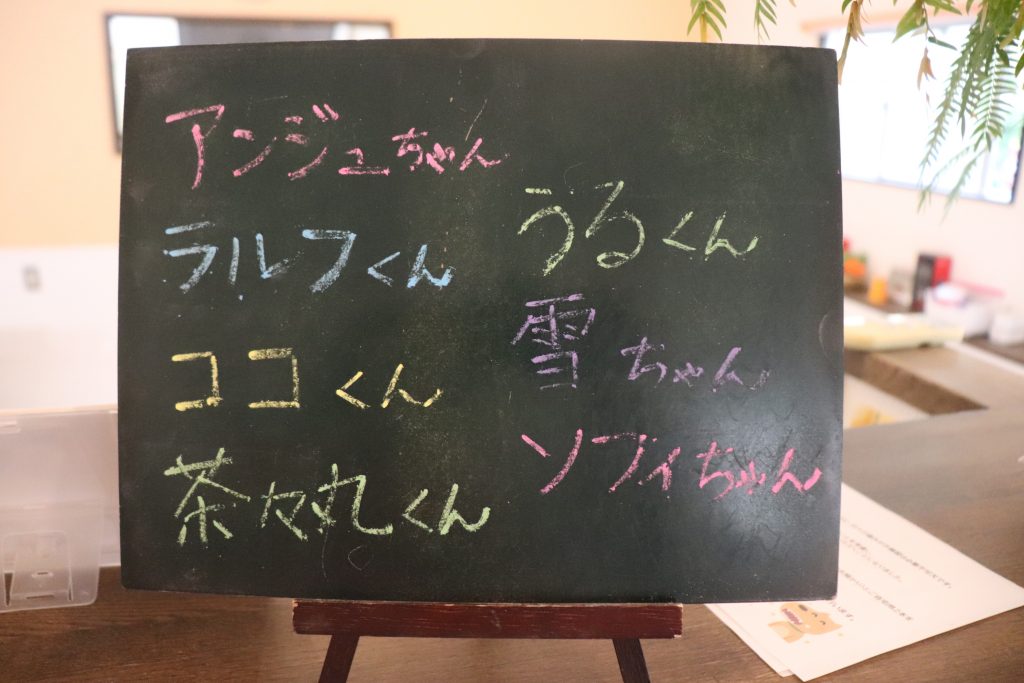 アンジュちゃん
ラルフくん
ココくん
茶々丸くん
うるくん
雪ちゃん
ソフィちゃん